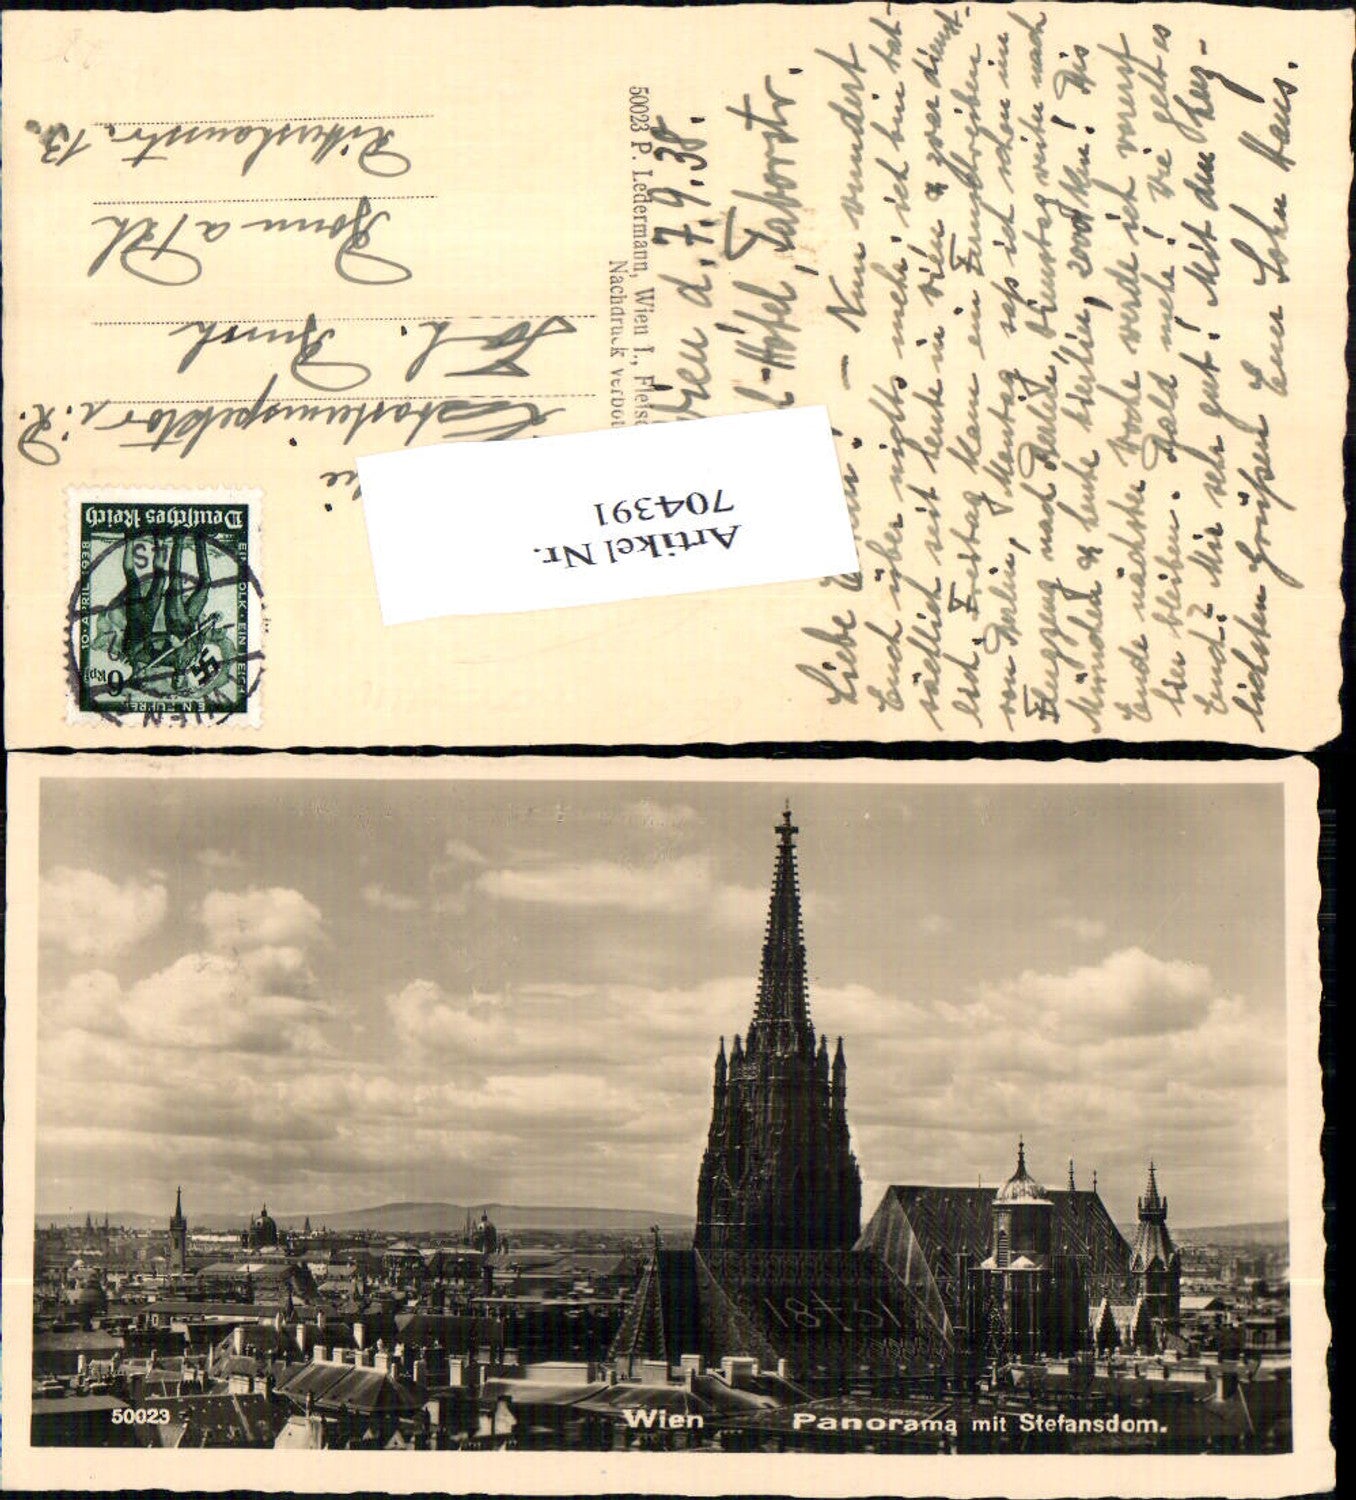 Wien d. 7.9.38.
Hotel, Taborstr.
Liebe — Nun wundert
Euch über nichts mehr; ich bin tat-
sächlich seit heute in Wien & zwar dienst-
lich. Freitag kam ein Fernschreiben
von Berlin, Montag sass ich schon im
Flugzeug nach Berlin, Dienstag weiter nach
München & heute hierhin, 2000 Klm! Bis
Ende nächster Woche werde ich vorerst
hier bleiben. Bald mehr! Wie geht es
Euch? Mir sehr gut! Mit den herz-
lichsten Grüßen Euer Sohn Hans.
50023 P. Ledermann, Wien I., Fleisc
Nachdruck verbot
Katasterinspektor i. R.
Bonn a/Rh
13.
Deutsches Reich
10. APRIL 1938
EIN VOLK · EIN REICH
EIN FÜHRER
6 Rpf
WIEN
Artikel Nr.
704391
1831
50023
Wien
Panorama mit Stefansdom.